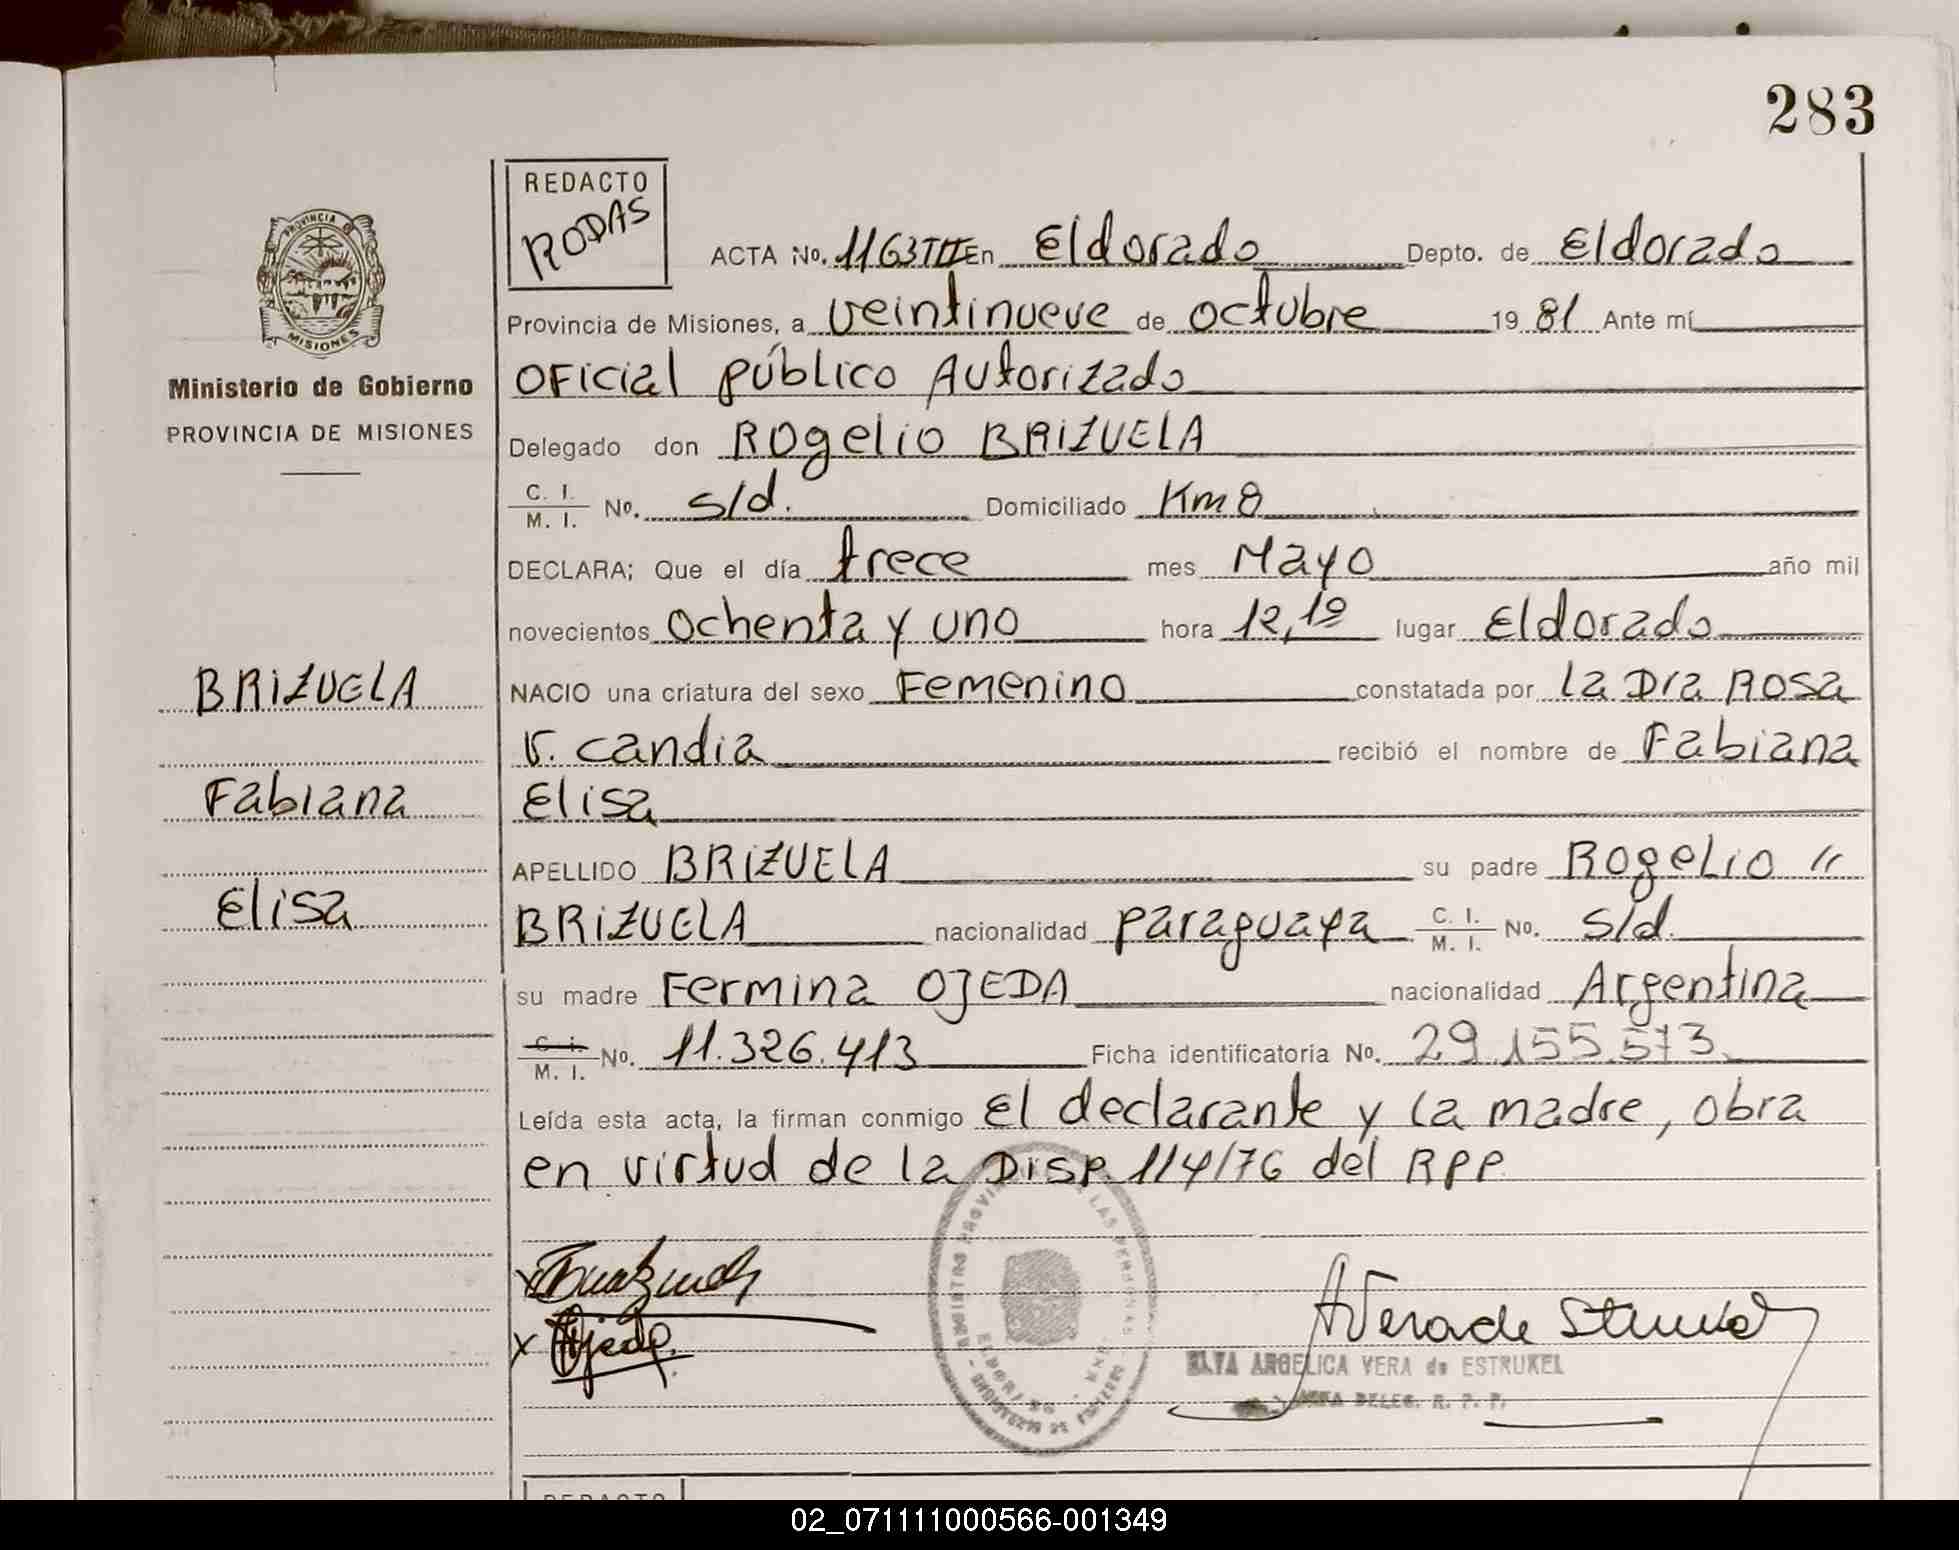 283
REDACTO
RODAS
ACTA No. 1163TII En Eldorado Depto. de Eldorado
Provincia de Misiones, a veintinueve de octubre 19 81 Ante mí
Oficial público Autorizado
Delegado don Rogelio BRIZUELA
C. I. / M. I. No. s/d. Domiciliado Km 8
DECLARA; Que el día trece mes Mayo año mil
novecientos ochenta y uno hora 12,10 lugar Eldorado
NACIO una criatura del sexo Femenino constatada por la Dra Rosa
V. Candia recibió el nombre de Fabiana
Elisa
APELLIDO BRIZUELA su padre Rogelio "
BRIZUELA nacionalidad paraguaya C. I. / M. I. No. s/d.
su madre Fermina OJEDA nacionalidad Argentina
C. I. / M. I. No. 11.326.413 Ficha identificatoria No. 29.155.573.
Leída esta acta, la firman conmigo el declarante y la madre, obra
en virtud de la Disp. 114/76 del RPP.
PROVINCIA
MISIONES
Ministerio de Gobierno
PROVINCIA DE MISIONES
BRIZUELA
Fabiana
Elisa
x
x Ojeda.
LAS PERSONAS
ELDORADO
A Vera de
VERA de ESTRUKEL
DELEG. R. P. P.
REDACTO
02_071111000566-001349